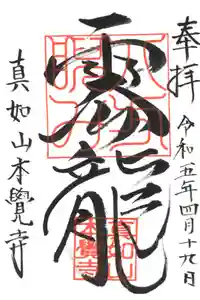 奉拝
令和五年四月十九日
龍
真如山本覺寺